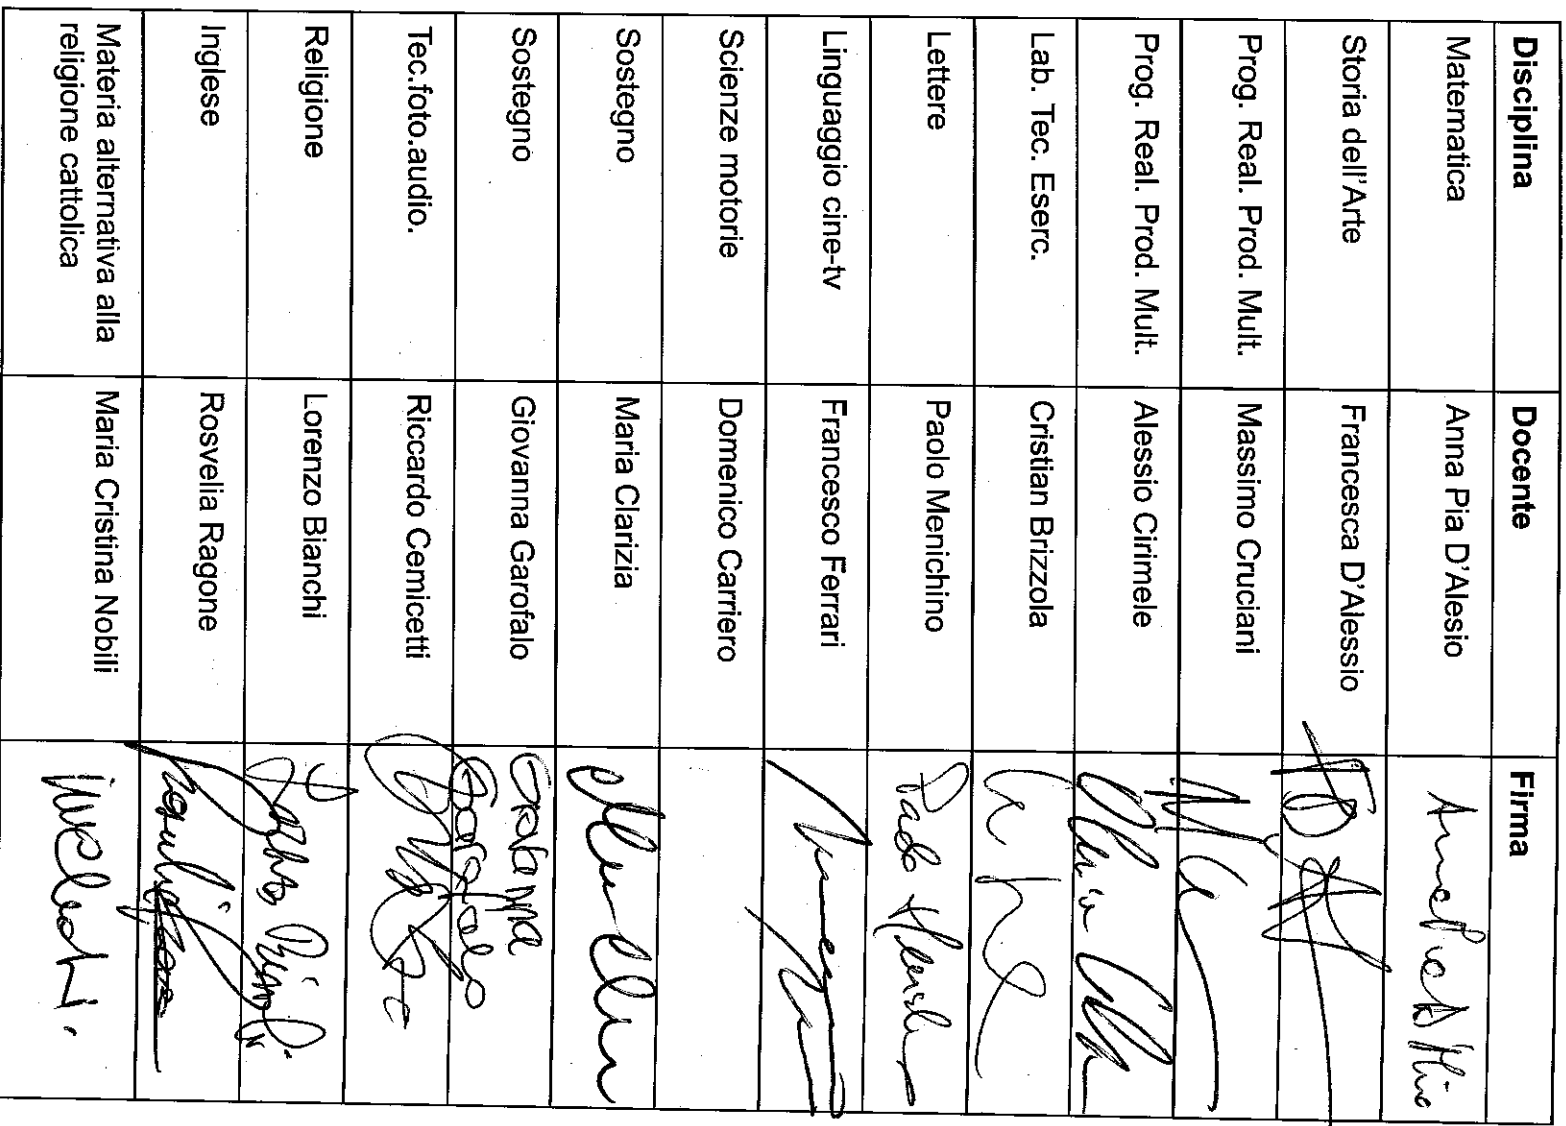 Disciplina Docente Firma
Matematica Anna Pia D'Alesio
Storia dell'Arte Francesca D'Alessio
Prog. Real. Prod. Mult. Massimo Cruciani
Prog. Real. Prod. Mult. Alessio Cirimele
Lab. Tec. Eserc. Cristian Brizzola
Lettere Paolo Menichino
Linguaggio cine-tv Francesco Ferrari
Scienze motorie Domenico Carriero
Sostegno Maria Clarizia
Sostegno Giovanna Garofalo Giovanna Garofalo
Tec.foto.audio. Riccardo Cemicetti
Religione Lorenzo Bianchi Lorenzo Bianchi
Inglese Rosvelia Ragone
Materia alternativa alla
religione cattolica
Maria Cristina Nobili